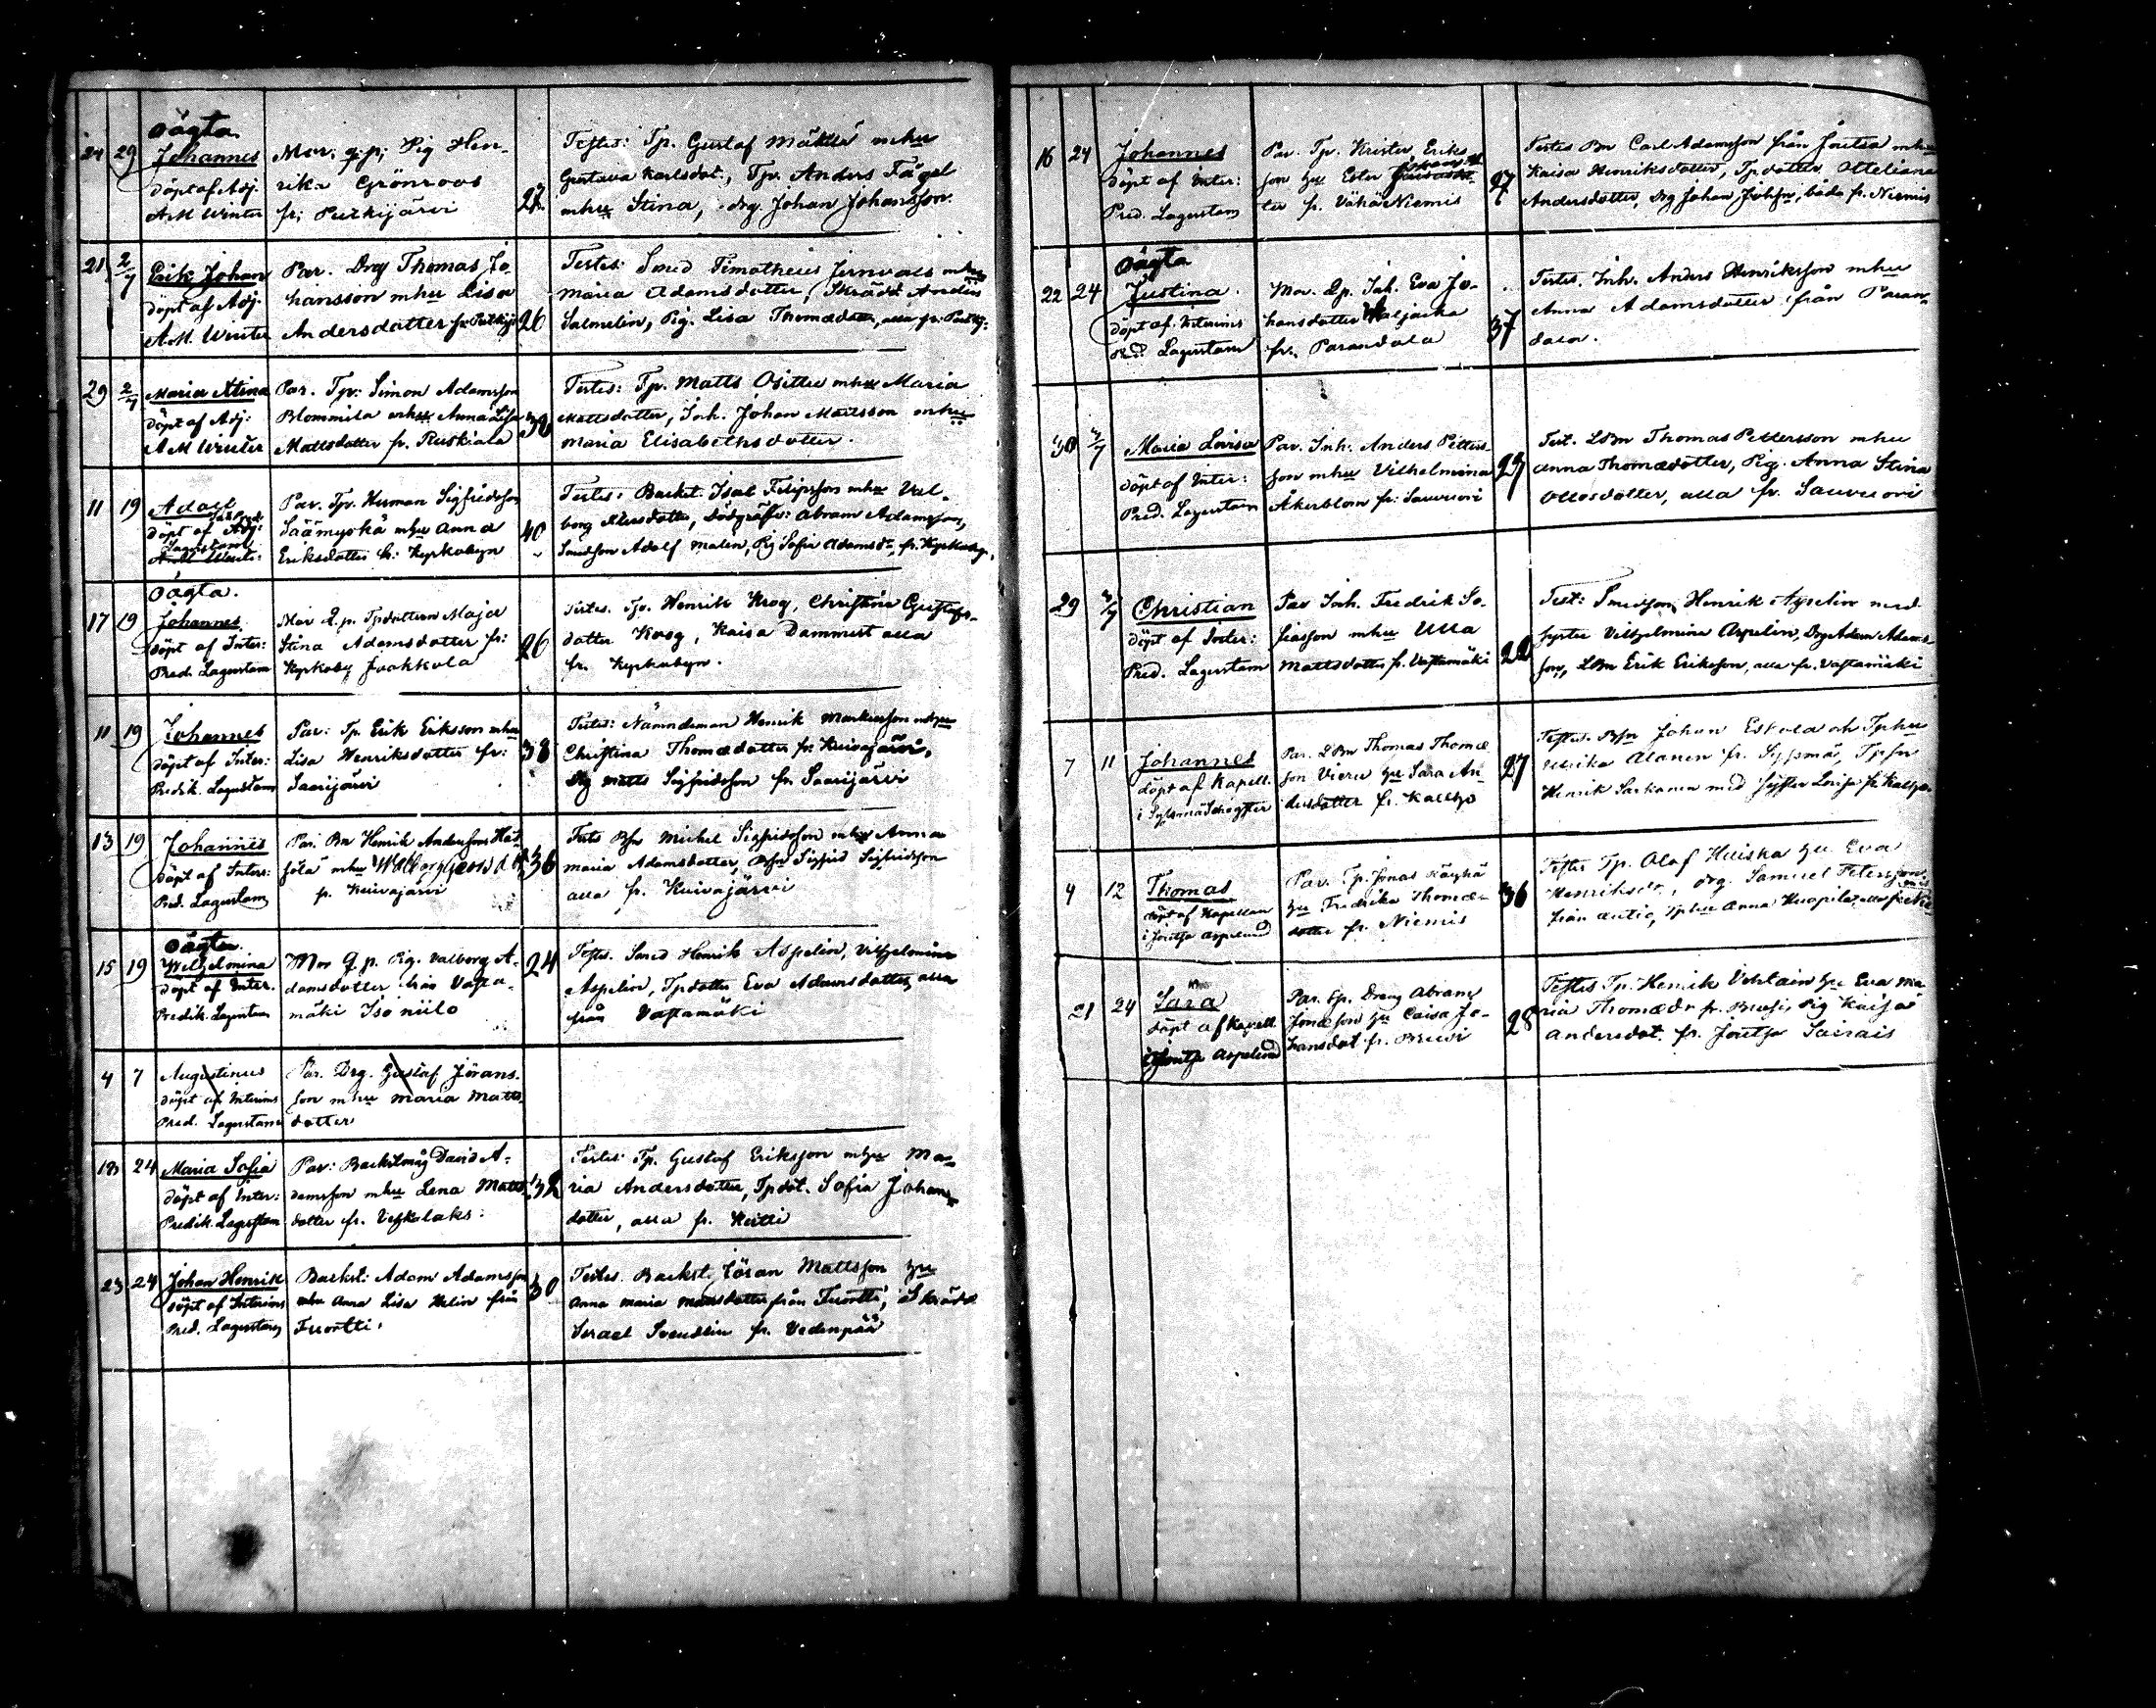 24 29 oägta
Johannes
döpt af Adj.
A.M. Winter
Mor: q.p. Pig Hen-
rika Grönroos
fr: Purkijärvi
27.
Testes: Tp. Gustaf Mäkelä mhu
Gustava Karlsdot., Tpr. Anders Fågel
mhu Stina, drg. Johan Johansson
21 2/7 Erik Johan
döpt af Adj.
A.M. Winter
Par. Drg Thomas Jo-
hansson mhu Lisa
Andersdotter
26
Testes: Smed Timotheus
Maria Adamsdotter, Skrädd.
Salmelin, Pig. Lisa Thomædotter, alla fr.
29 2/7 Maria Stina
döpt af Adj:
A M Winter
Par. Tpr. Simon Adamsson
Blommila mhu Anna Lisa
Mattsdotter fr. Ruskiala
38
Testes: Tp. Matts mhu Maria
Mattsdotter, Inh. Johan Mattsson mhu
Maria Elisabethsdotter.
11 19 Adolf
döpt af
Lagerstam
Par. Tpr. Herman Sigfridsson
Säämyskä mhu Anna
Eriksdotter fr: Kyrkobyn
40
Testes: Backst. Isak Filipsson mhu Val-
borg, Abram Adamsson,
Adolf Malén, Pig Sofia Adamsdr, fr. Kyrkoby.
17 19 Oägta.
Johannes
döpt af Inter:
Pred. Lagerstam
Mor q.p. Tpdottern Maja
Stina Adamsdotter fr:
Kyrkoby Jaakkola
26
Testes. Tp. Henrik Krog, Christina Gustafs-
dotter Krog, Kaisa Dammert alla
fr. Kyrkobyn.
11 19 Johannes
döpt af Inter:
Predik. Lagerstam
Par: Tp. Erik Eriksson mhu
Lisa Henriksdotter fr:
Saarijärvi
38
Testes: Nämndeman Henrik Markusson mhu
Christina Thomædotter fr: Kuivajärvi,
Drg Matts Sigfridsson fr. Saarijärvi
13 19 Johannes
döpt af Inter:
Pred. Lagerstam
Par. Bn Henrik Andersson
mhu Walborg
fr. Kuivajärvi
36
Testes Bsn Michel Sigfridsson mhu Anna
Maria Adamsdotter, Bsn Sigfrid Sigfridsson
alla fr. Kuivajärvi
15 19 Oägta.
Wilhelmina
döpt af Inter.
Predik. Lagerstam
Mor q.p. Pig. Valborg A-
damsdotter från Vasta-
mäki Isoniilo
24
Testes. Smed Henrik Aspelin, Vilhelmina
Aspelin, Tpdotter Eva Adamsdotter, alla
från Vastamäki
4 7 Augustinus
döpt af Interims
Pred. Lagerstam
Par. Drg. Gustaf Jörans-
son mhu Maria Matts-
dotter
18 24 Maria Sofia
döpt af Inter:
Predik. Lagerstam
Par: David A-
damsson mhu Lena Matts-
dotter fr. Vehkalaks.
32
Testes: Tp. Gustaf Eriksson mhu Ma-
ria Andersdotter, Tpdot. Sofia Johans-
dotter, alla fr. Heitti
23 24 Johan Henrik
döpt af Interims
Pred. Lagerstam
Backst: Adam Adamsson
mhu Anna Lisa Helin från
Tuortti.
30
Testes. Backst. Jöran Mattsson hu
Anna Maria Mattsdotter från Tuortti, Skrädd
Israel Svendelin fr. Vedenpää
16 24 Johannes
döpt af Inter:
Pred. Lagerstam
Par. Tp. Krister Eriks-
son hu Ester
ter fr. Vähä Niemis
27
Testes Bn Carl Adamsson från Joutsa mhu
Kaisa Henriksdotter, Tpdotter Otteliana
Andersdotter, Drg Johan Johsn, båda fr. Niemis
22 24 oägta
Justina.
döpt af Interims
Pred. Lagerstam
Mor. q.p. Inh. Eva Jo-
hansdotter Valjacka
fr. Parandala
37
Testes. Inh. Anders Henriksson mhu
Anna Adamsdotter från Paran-
dala.
30 3/7 Maria Lovisa
döpt af Inter:
Pred. Lagerstam
Par. Inh. Anders Petters-
son mhu Vilhelmina
Åkerblom fr: Sauvuori
29
Test. LBn Thomas Pettersson mhu
Anna Thomædotter, Pig. Anna Stina
Ottosdotter, alla fr. Sauvuori
29 Christian
döpt af Inter:
Pred. Lagerstam
Par Inh. Fredrik
mhu Ulla
Mattsdotter fr. Vastamäki
22
Test: Smedson Henrik Aspelin med
syster Vilhelmina Aspelin, Drg Adam Adams-
son, LBn Erik Eriksson, alla fr. Vastamäki
7 11 Johannes
döpt af Kapell.
i Sysmä
Par. LBn Thomas Thomæ-
son Vieru hu Sara An-
dersdotter fr. Kalho
27
Testes. Bsn Johan Eskola och Tphu
Ulrika Alanen fr. Sysmä, Tpsn
Henrik Sarkanen med syster Lovisa fr Kalho.
4 12 Thomas
döpt af Kapellan
i Joutsa Aspelund
Par. Tp. Jonas Käyhkä
hu Fredrika Thomæ-
dotter fr. Niemis
36
Testes Tp. Olof Huiska hu Eva
Henriksdr, drg. Samuel Petersson
från Autio, Tphu Anna
21 24 Sara
döpt af Kapell.
i Joutsa Aspelund
Par. Drang Abram
Jonæson hu Caisa Jo-
hansdot fr. Ruorasi
28
Testes Tp. Henrik hu Eva Ma-
ria Thomædr fr., Pig Kaisa
Andersdot. fr. Joutsa